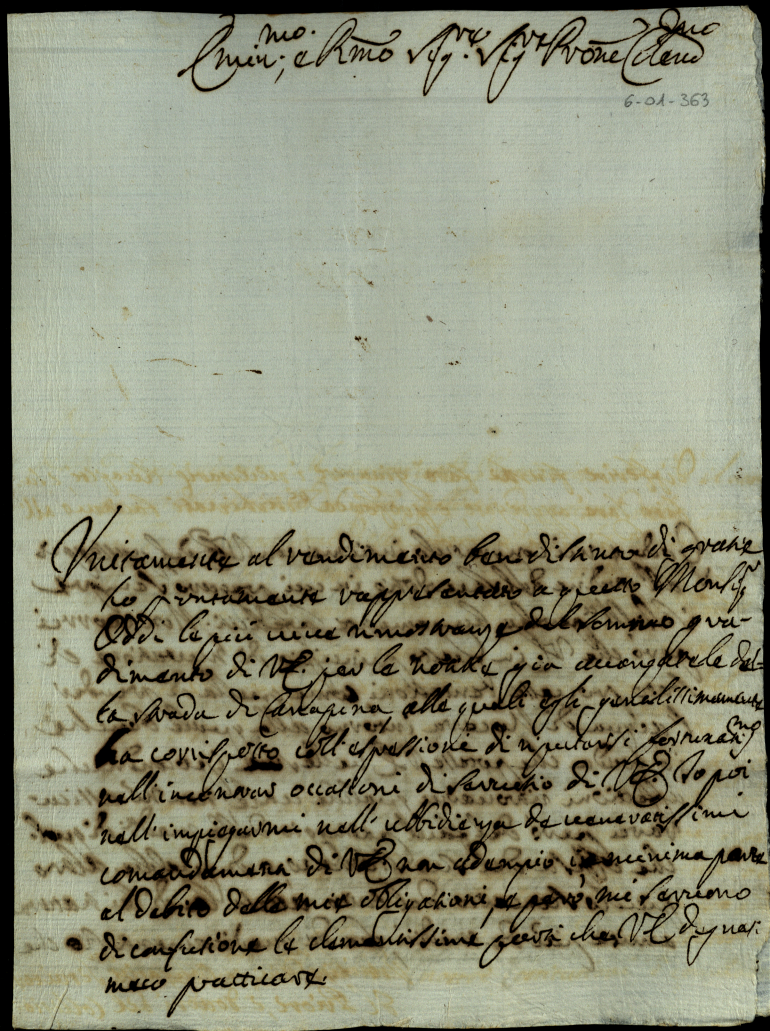 Emin.mo, e Rmo Sig.re Sig.re Prone Colendmo
6-01-363
Unitamente al rendimento ben distinto di gratie
ho puntamente rappresentato a questo Monsig.r
Oddi le più vive rimostranze del sommo gra-
dimento di VE. per le notitie già accennatele del-
la strada di Carpegna, alle quali egli gentilissimamente
ha corrisposto coll'espressione di riputarsi fortunatis.mo
nell'incontrar occasioni di servitio di VE. Io poi
nell'impiegarmi nell'ubbidienza de veneratissimi
comandamenti di VE non adempio in minima parte
al debito delle mie obligationi, e però mi servono
di confusione le clementissime parti che VE si degna
meco pratticare.